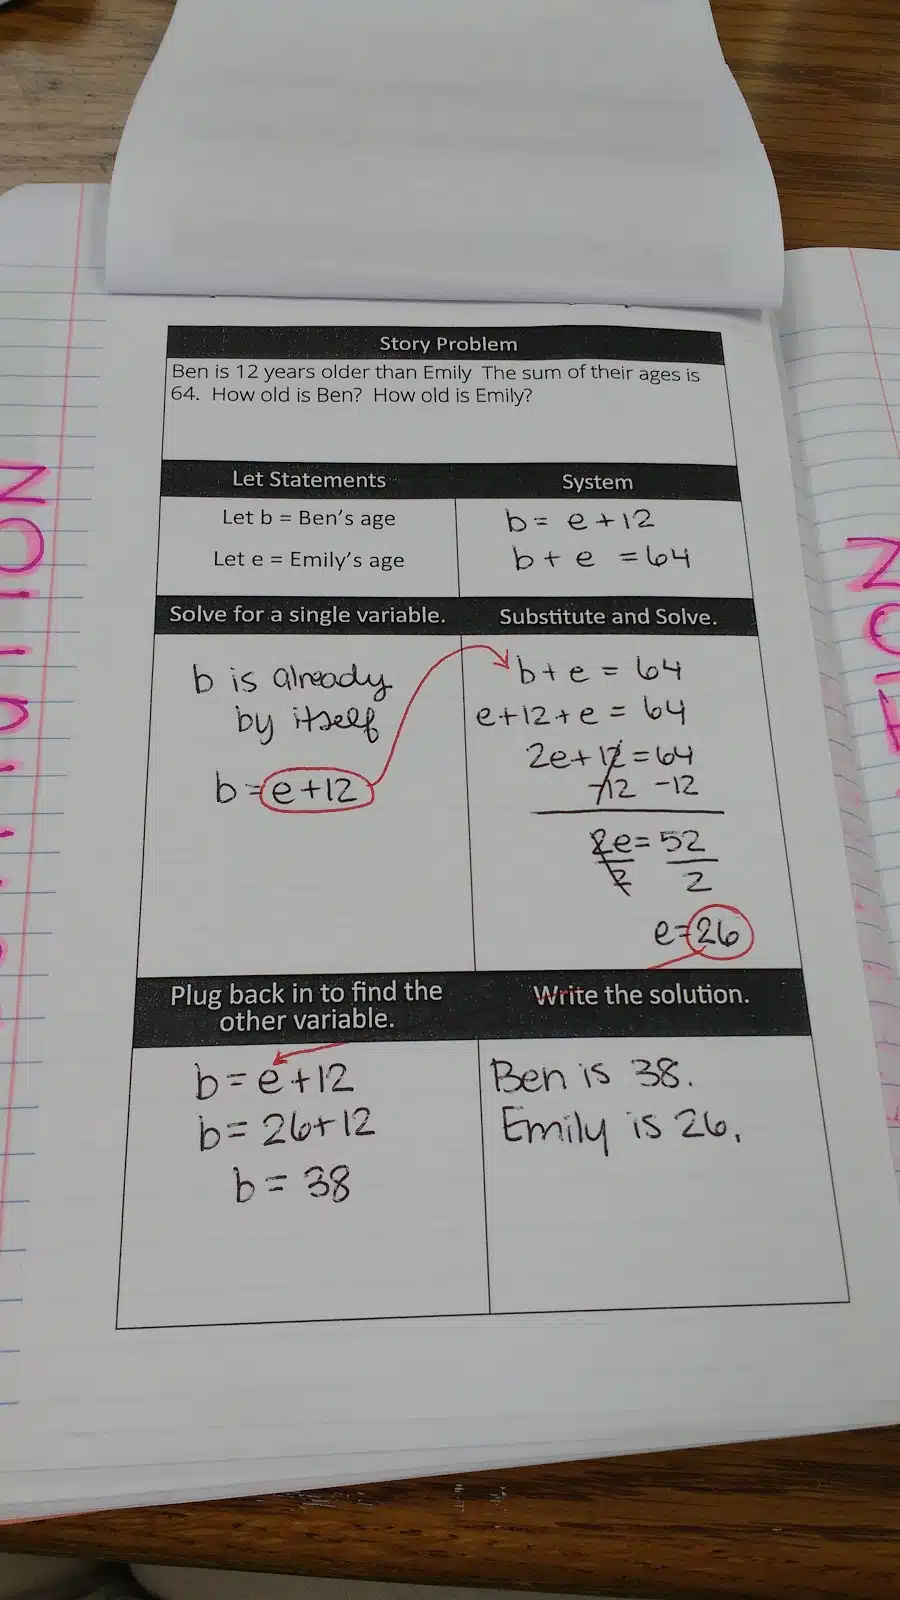 Story Problem
Ben is 12 years older than Emily The sum of their ages is
64. How old is Ben? How old is Emily?
Let Statements
Let b = Ben's age
Let e = Emily's age
System
b = e + 12
b + e = 64
Solve for a single variable.
b is already
by itself
b = e + 12
Substitute and Solve.
b + e = 64
e + 12 + e = 64
2e + 12 = 64
-12 -12
2e = 52
2 2
e = 26
Plug back in to find the
other variable.
b = e + 12
b = 26 + 12
b = 38
Write the solution.
Ben is 38.
Emily is 26.